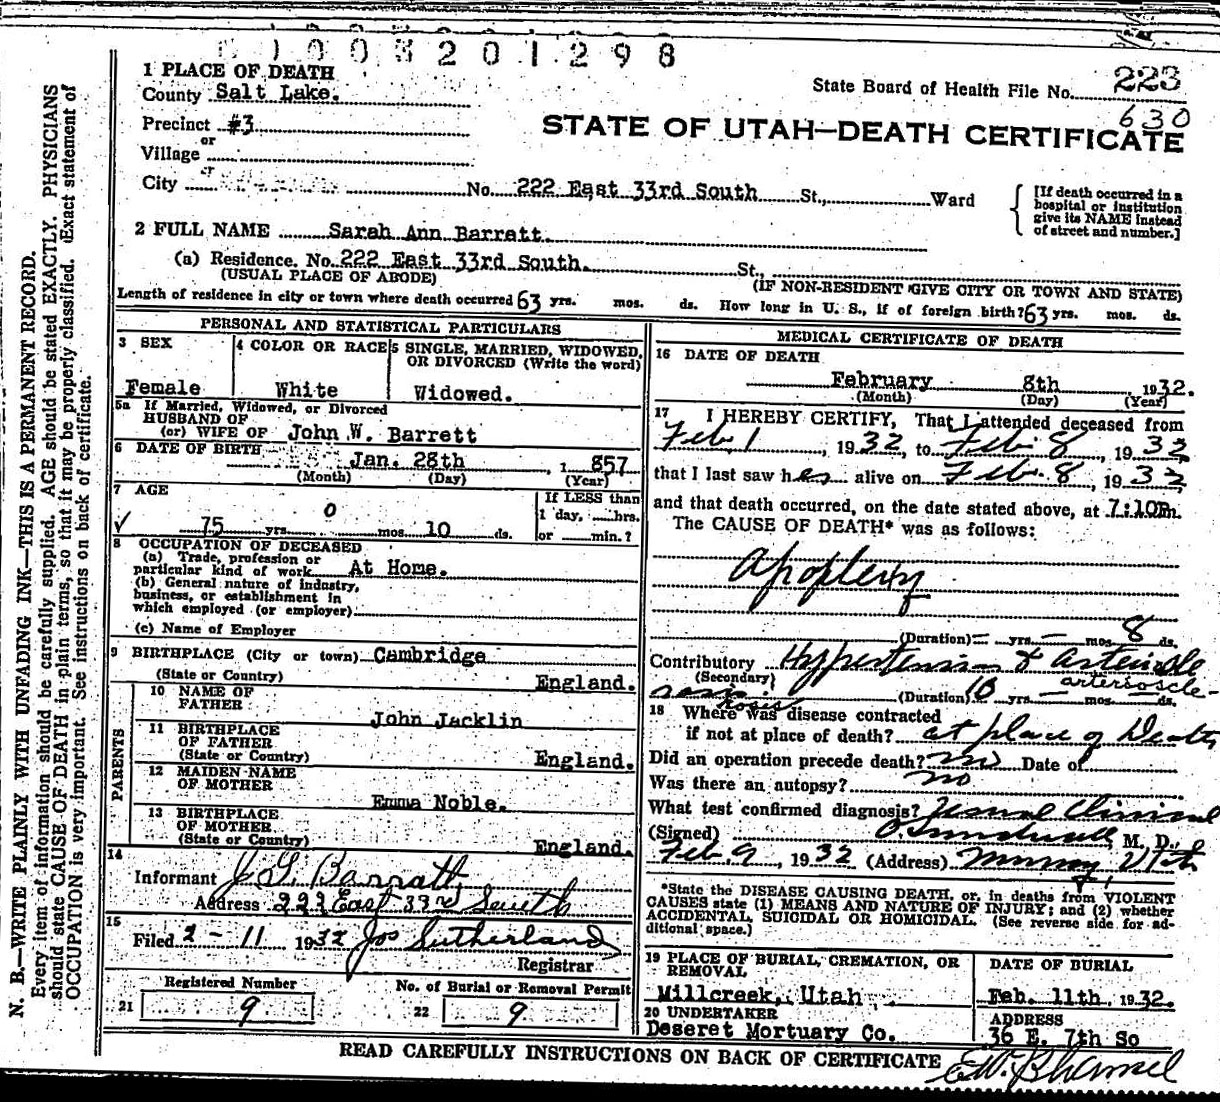 0 0 0 3 2 0 1 2 9 8
1 PLACE OF DEATH
County Salt Lake.
Precinct #3
or
Village
or
City No. 222 East 33rd South St., Ward
[If death occurred in a
hospital or institution
give its NAME instead
of street and number.]
State Board of Health File No. 223
630
STATE OF UTAH—DEATH CERTIFICATE
2 FULL NAME Sarah Ann Barrett.
(a) Residence. No. 222 East 33rd South. St.,
(USUAL PLACE OF ABODE) (IF NON-RESIDENT GIVE CITY OR TOWN AND STATE)
Length of residence in city or town where death occurred 63 yrs. mos. ds. How long in U. S., if of foreign birth? 63 yrs. mos. ds.
PERSONAL AND STATISTICAL PARTICULARS
3 SEX
Female
4 COLOR OR RACE
White
5 SINGLE, MARRIED, WIDOWED,
OR DIVORCED (Write the word)
Widowed.
5a If Married, Widowed, or Divorced
HUSBAND OF
(or) WIFE OF John W. Barrett
6 DATE OF BIRTH Jan. 28th, 1 857
(Month) (Day) (Year)
7 AGE
75 yrs. 0 mos. 10 ds.
If LESS than
1 day, hrs.
or min.?
8 OCCUPATION OF DECEASED
(a) Trade, profession or
particular kind of work At Home.
(b) General nature of industry,
business, or establishment in
which employed (or employer)
(c) Name of Employer
9 BIRTHPLACE (City or town) Cambridge
(State or Country) England.
PARENTS
10 NAME OF
FATHER John Jacklin
11 BIRTHPLACE
OF FATHER
(State or Country) England.
12 MAIDEN NAME
OF MOTHER Emma Noble.
13 BIRTHPLACE
OF MOTHER
(State or Country) England.
14
Informant J. G. Barratt,
Address 222 East 33rd South
15
Filed 2-11 1932 Jos Sutherland
Registrar
Registered Number
21 9
No. of Burial or Removal Permit
22 9
MEDICAL CERTIFICATE OF DEATH
16 DATE OF DEATH
February 8th 1932.
(Month) (Day) (Year)
17 I HEREBY CERTIFY, That I attended deceased from
Feb. 1, 1932, to Feb. 8, 1932
that I last saw her alive on Feb. 8, 1932,
and that death occurred, on the date stated above, at 7:10P.m.
The CAUSE OF DEATH* was as follows:
Apoplexy
(Duration) — yrs. — mos. 8 ds.
Contributory Hypertension & Arteriscle
(Secondary)
rosis. arterioscle-
rosis
(Duration) 10 yrs. — mos. — ds.
18 Where was disease contracted
if not at place of death? at place of Death
Did an operation precede death? no Date of
Was there an autopsy? no
What test confirmed diagnosis? Usual Clinical
(Signed) M. D.
Feb. 9, 1932 (Address) Murray, Utah
*State the DISEASE CAUSING DEATH, or, in deaths from VIOLENT
CAUSES state (1) MEANS AND NATURE OF INJURY; and (2) whether
ACCIDENTAL, SUICIDAL OR HOMICIDAL. (See reverse side for ad-
ditional space.)
19 PLACE OF BURIAL, CREMATION, OR
REMOVAL
Millcreek, Utah
DATE OF BURIAL
Feb. 11th, 1932.
20 UNDERTAKER
Deseret Mortuary Co.
ADDRESS
36 E. 7th So
READ CAREFULLY INSTRUCTIONS ON BACK OF CERTIFICATE
N. B.—WRITE PLAINLY WITH UNFADING INK—THIS IS A PERMANENT RECORD.
Every item of information should be carefully supplied. AGE should be stated EXACTLY. PHYSICIANS
should state CAUSE OF DEATH in plain terms, so that it may be properly classified. (Exact statement of
OCCUPATION is very important. See instructions on back of certificate.